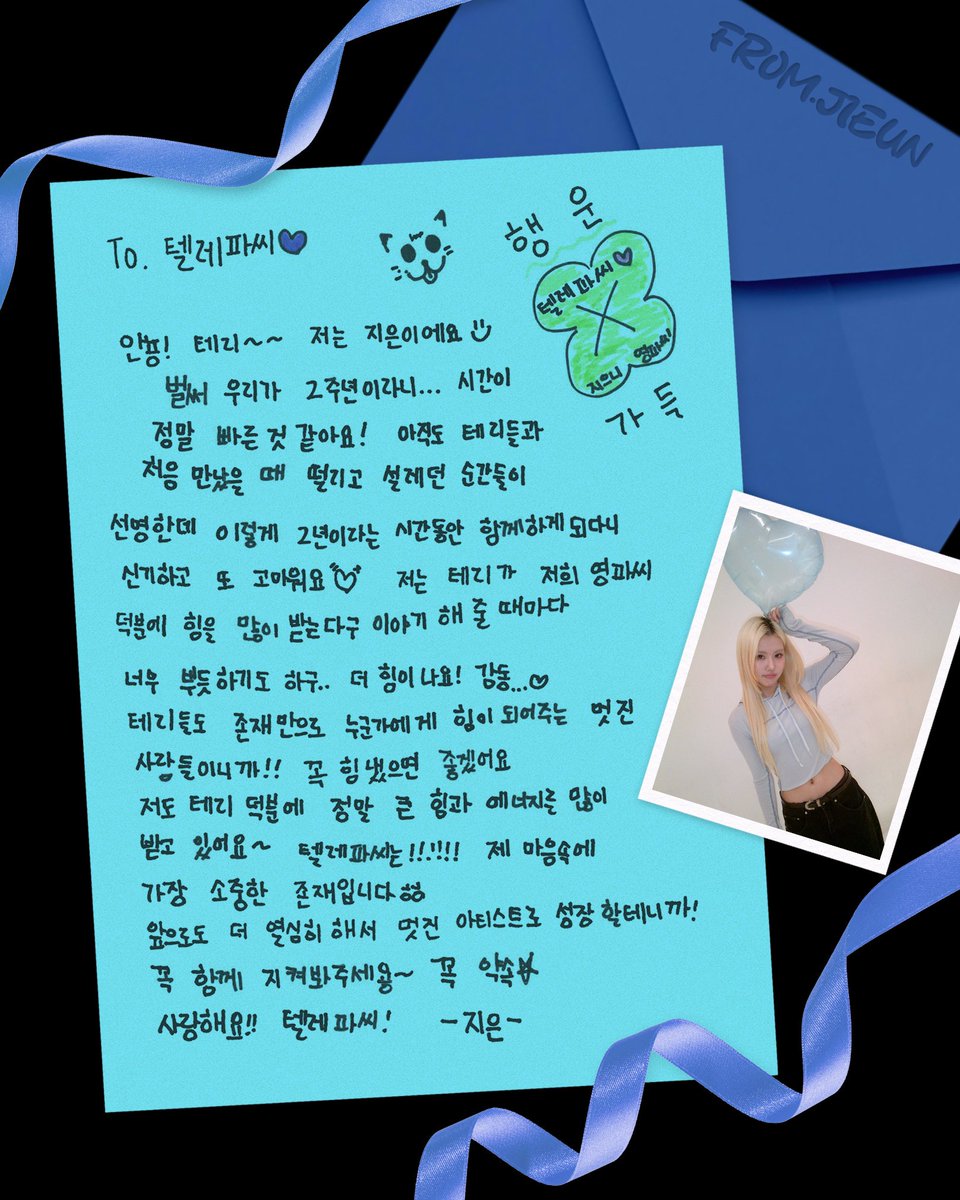 FROM.JIEUN
To. 텔레파씨
행운
텔레파씨
X
지으니 영파씨!
가득
안뇽! 테리~~ 저는 지은이에요
벌써 우리가 2주년이라니... 시간이
정말 빠른 것 같아요! 아직도 테리들과
처음 만났을 때 떨리고 설레던 순간들이
선명한데 이렇게 2년이라는 시간동안 함께하게 되다니
신기하고 또 고마워요 저는 테리가 저희 영파씨
덕분에 힘을 많이 받는다구 이야기 해 줄 때마다
너무 뿌듯하기도 하구.. 더 힘이 나요! 감동...
테리들도 존재만으로 누군가에게 힘이 되어주는 멋진
사람들이니까!! 꼭 힘 냈으면 좋겠어요
저도 테리 덕분에 정말 큰 힘과 에너지를 많이
받고 있어요~ 텔레파씨는!!!!!! 제 마음속에
가장 소중한 존재입니다
앞으로도 더 열심히 해서 멋진 아티스트로 성장 할테니까!
꼭 함께 지켜봐주세용~ 꼭 약속
사랑해요!! 텔레파씨! -지은-